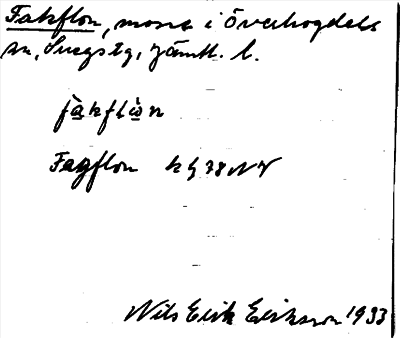 Fakflon, mosse i Överhogdals
sn, Svegs tg, Jämtl. l.
fàkflòn
Fagflon k bl 78 NV
Nils Erik Eriksson 1933